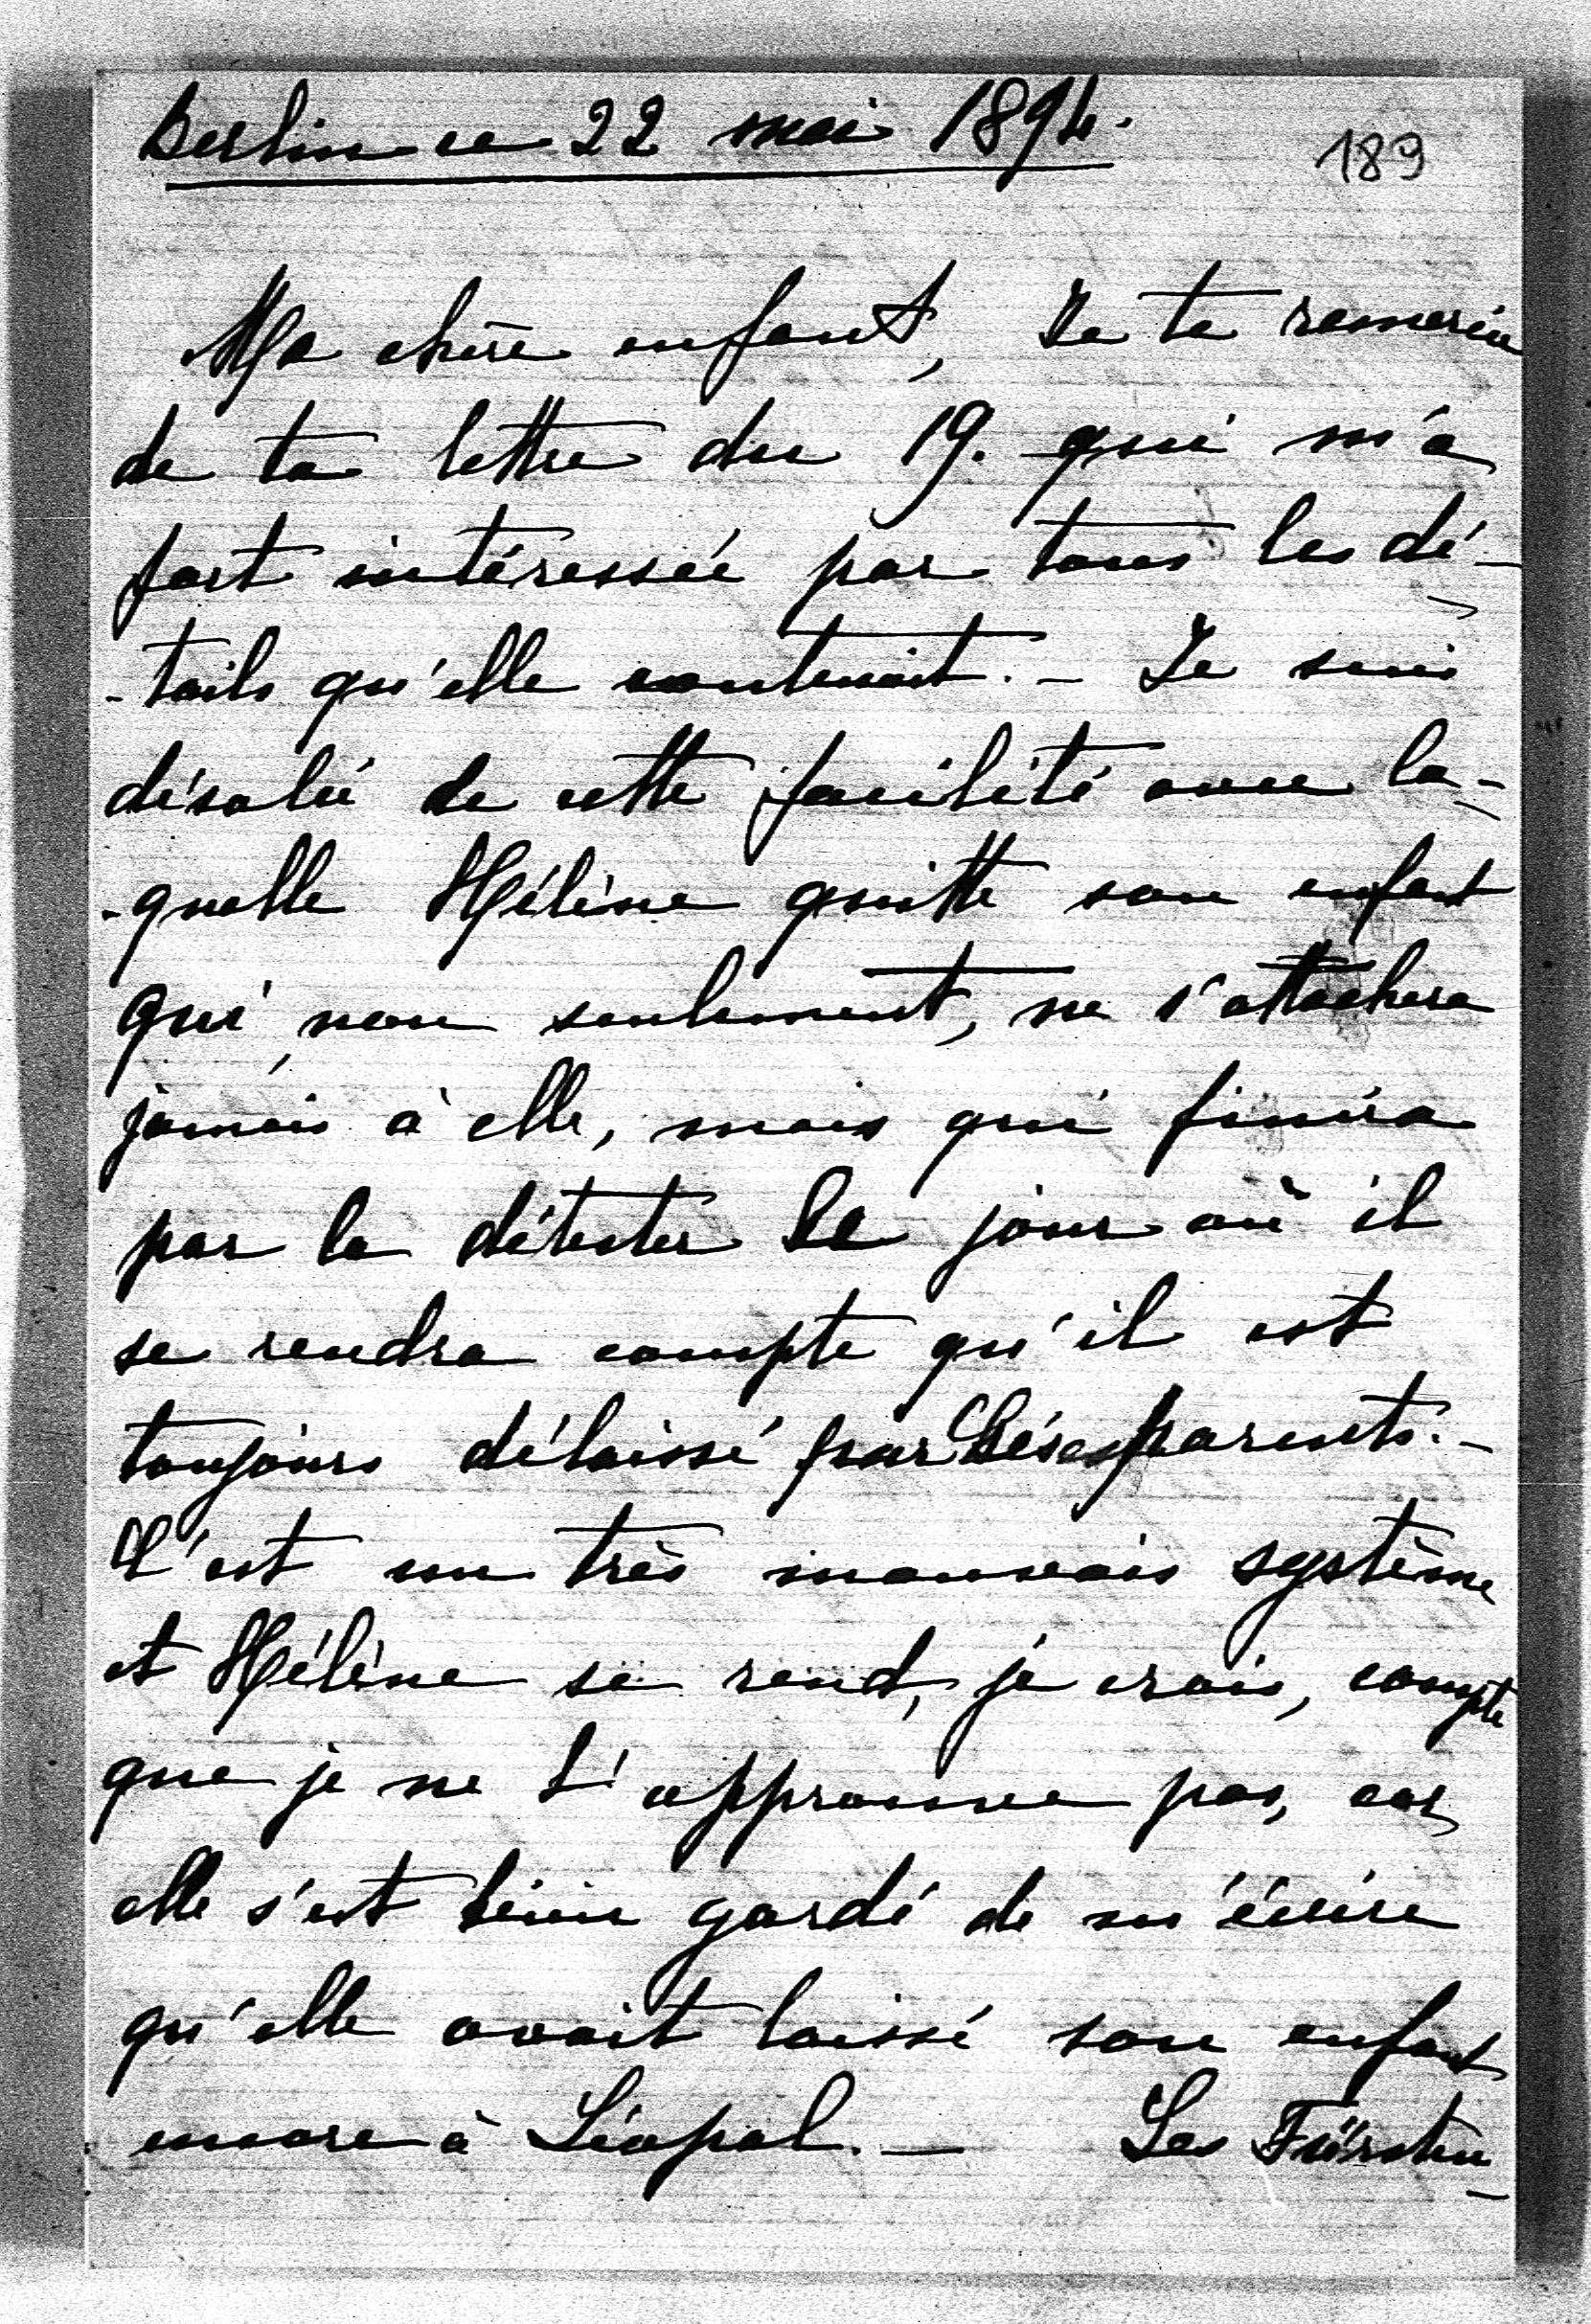 Berlin ce 22 mai 1894.
189
Ma chère enfant, Je te remercie
de ta lettre du 19. qui m'a
fort intéressée par tous les dé-
-tails qu'elle contenait. - Je suis
désolée de cette facilité avec la-
-quelle Hélène quitte son enfant
qui, non seulement, ne s'attachera
jamais à elle, mais qui finira
par la détester le jour où il
se rendra compte qu'il est
toujours délaissé par ses parents. -
C'est un très mauvais système
et Hélène se rend, je crois, compte
que je ne l'approuve pas, car
elle s'est bien gardé de m'écrire
qu'elle avait laissé son enfant
encore à Léopol. - Les Fürsten-